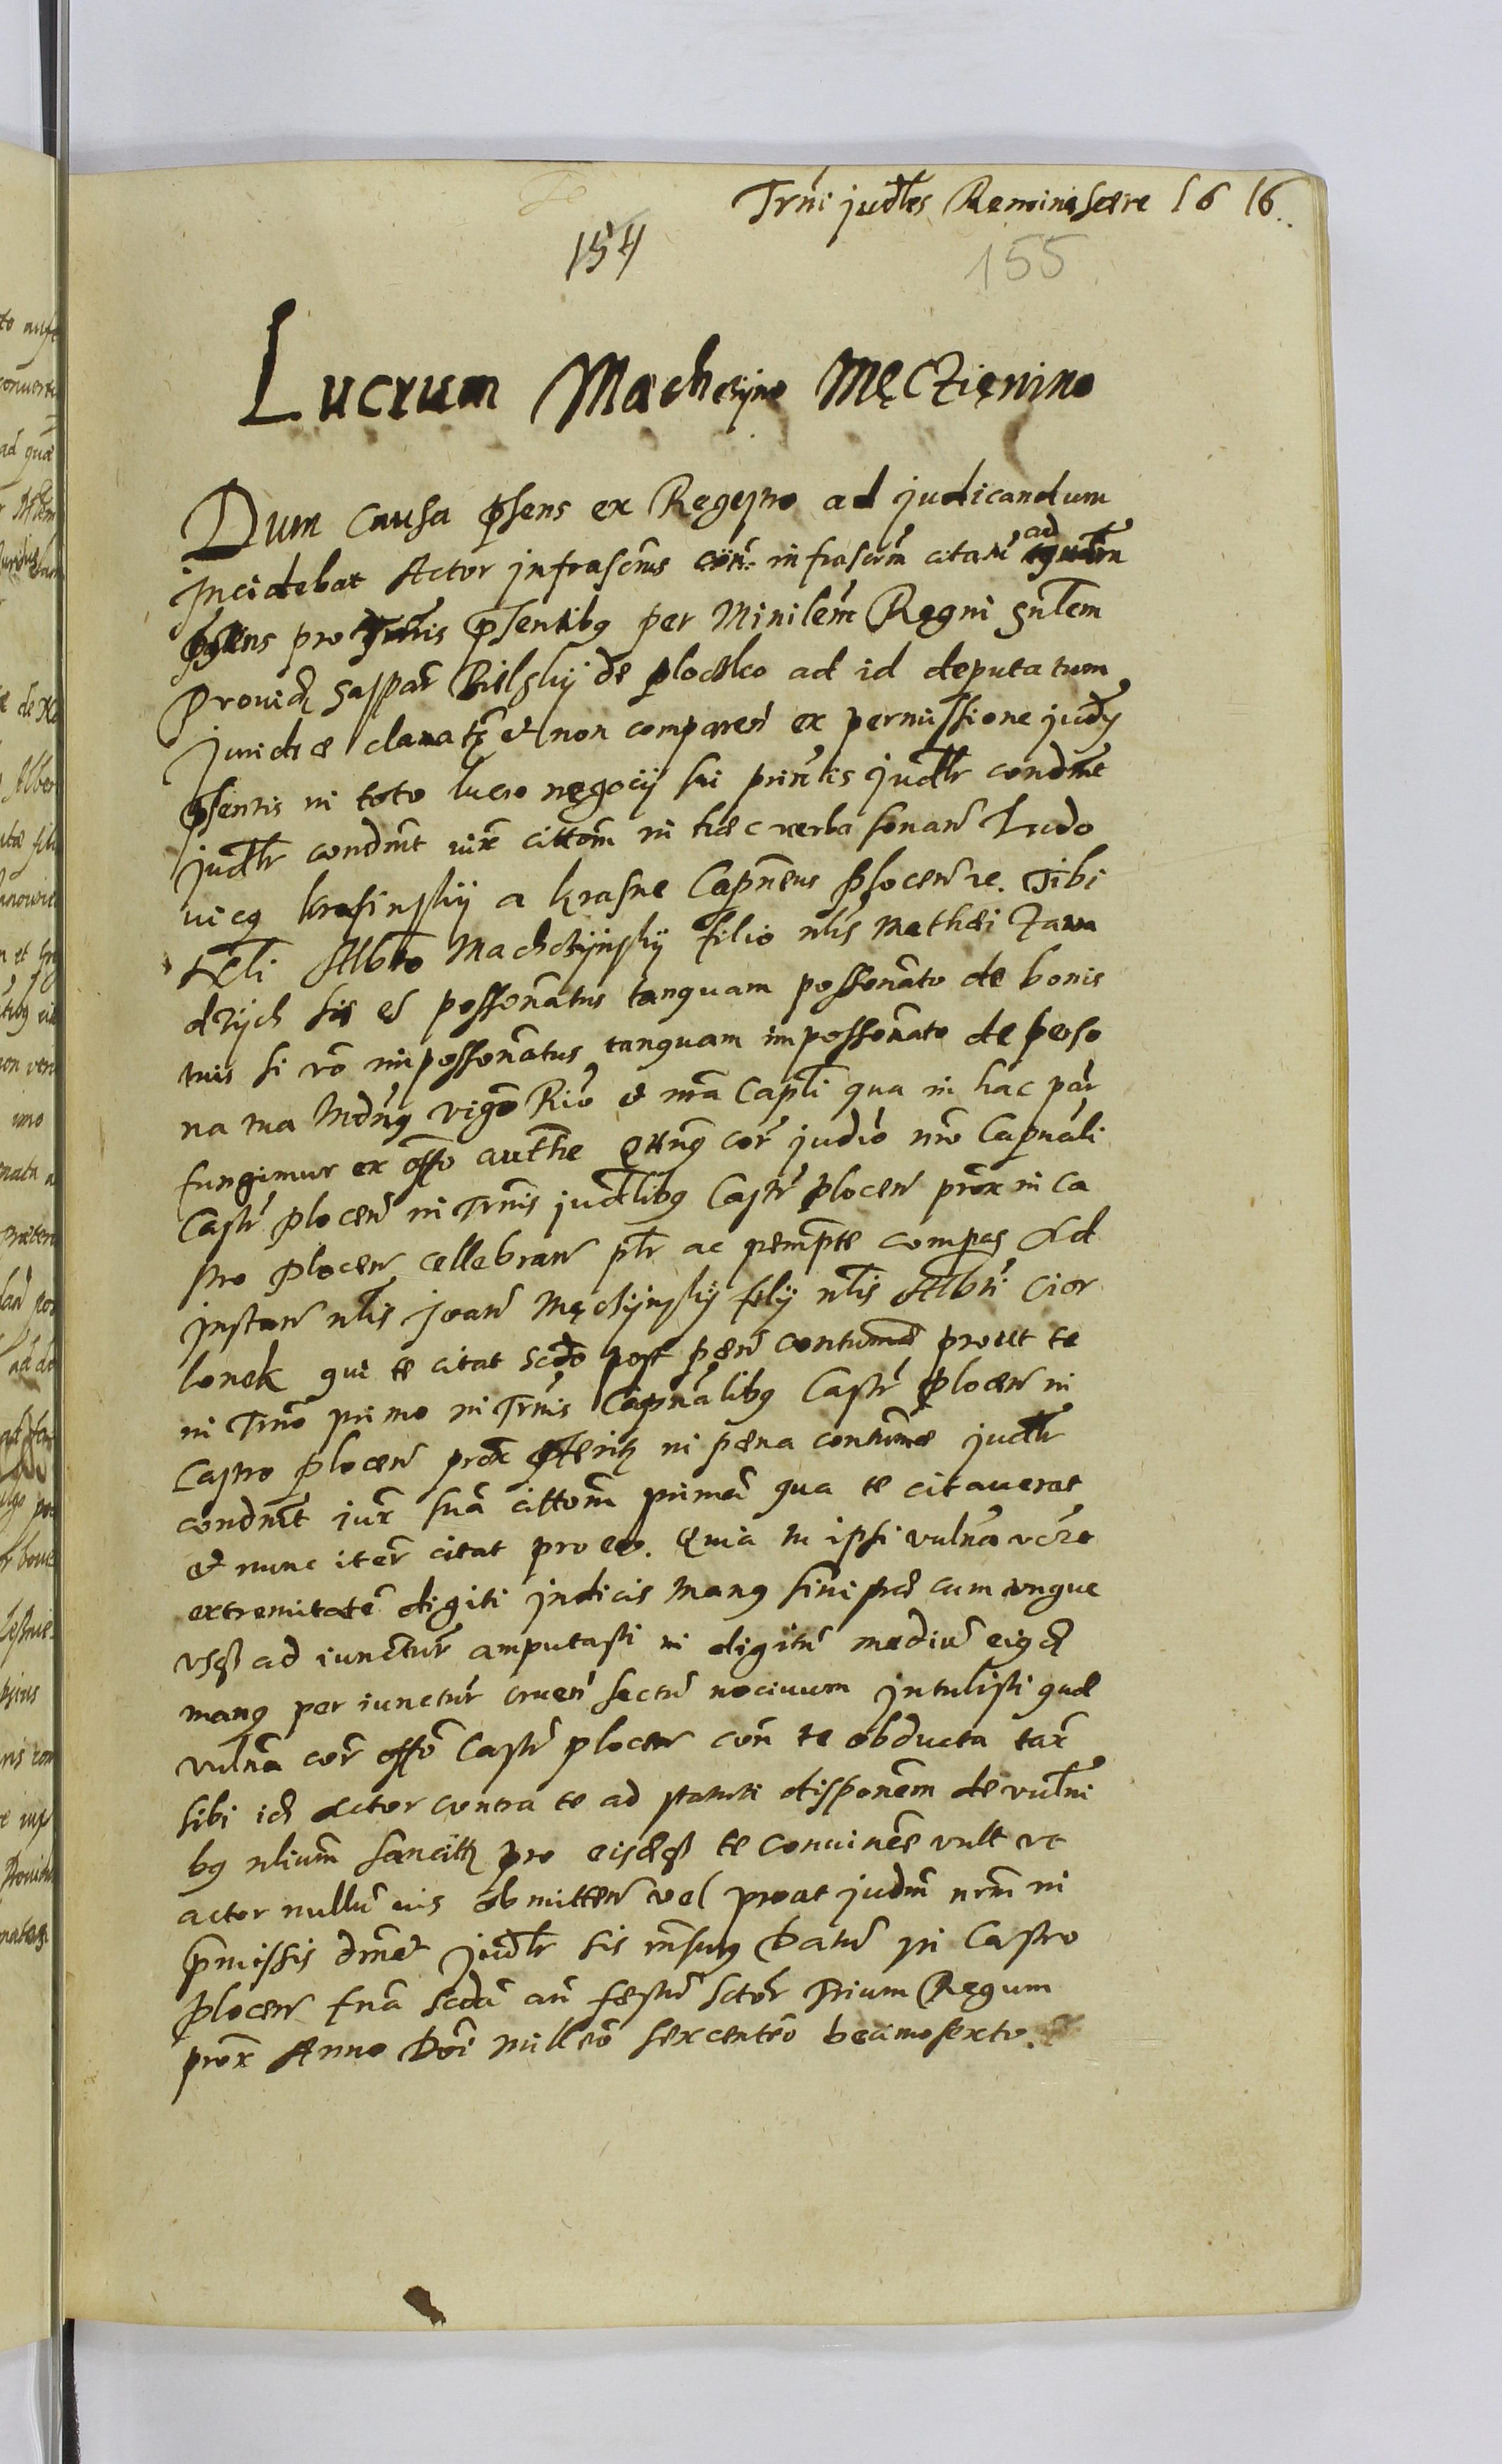 Trni judles Reminiscere 1616.
154
155
Lucrum Machczijno Męczięnino
Dum causa psens ex Regestro ad judicandum
incidebat Actor infrascrus infrascrm citatu ad
psens pro psentibus per Minilem Regni gnlem
Provid Gaspar Bielskij de plocsko ad id deputatum
juridice clamatz et non comparen ex permissione judij
psentis in toto lucro negocij sui prinlis judlr condmt
judlr condmt iux cittom in hæc verba sonan Ludo
vicus krasinskij a krasne Capneus plocen re. Tibi
Nli Albto Machczijnskij filio nlis Mathæi Zawa
drijch sis es possonatus tanquam possonato de bonis
tuis si ro impossonatus tanquam impossonato de perso
na tua Mdmus vigo Rio et nra Capli qua in hac par
fungimur ex offo authe qtnus cor judio nro Capnali
Castr plocen in Trnis judlibus Castr plocen prox in Ca
stro plocen cellebran plr ac pempte compas Ad
instan nlis Joan Męczijnskij filij nlis Albti Cior
lonek qui te citat scdo post pæn contumæ prout te
in Trno primo in Trnis Capnalibus Castr plocen in
Castro plocen prox pteritz in pæna contumæ judlr
condmt jux sua cittom prima qua te citaverat
et nunc iter citat pro eo. Quia tu ipsi vulna
extremitate digiti indicis manus sinistræ cum ungue
usq ad iunctur amputasti in digitu mediu eiusd
manus per iunctur cruen sectu nocivum intulisti quæ
vulna cor offo Castr plocen con te obducta tax
sibi id Actor contra te ad statuti disponem de vulni
bus nlium sancitz pro eisdq te convince vult ut
actor nullu ius obmitten vel prout judm nrm in
pmissis dmet judlr sis rnsurus Datu in Castro
plocen fria scda an festu sctor Trium Regum
prox Anno Doi millo sexcento decimosexto.